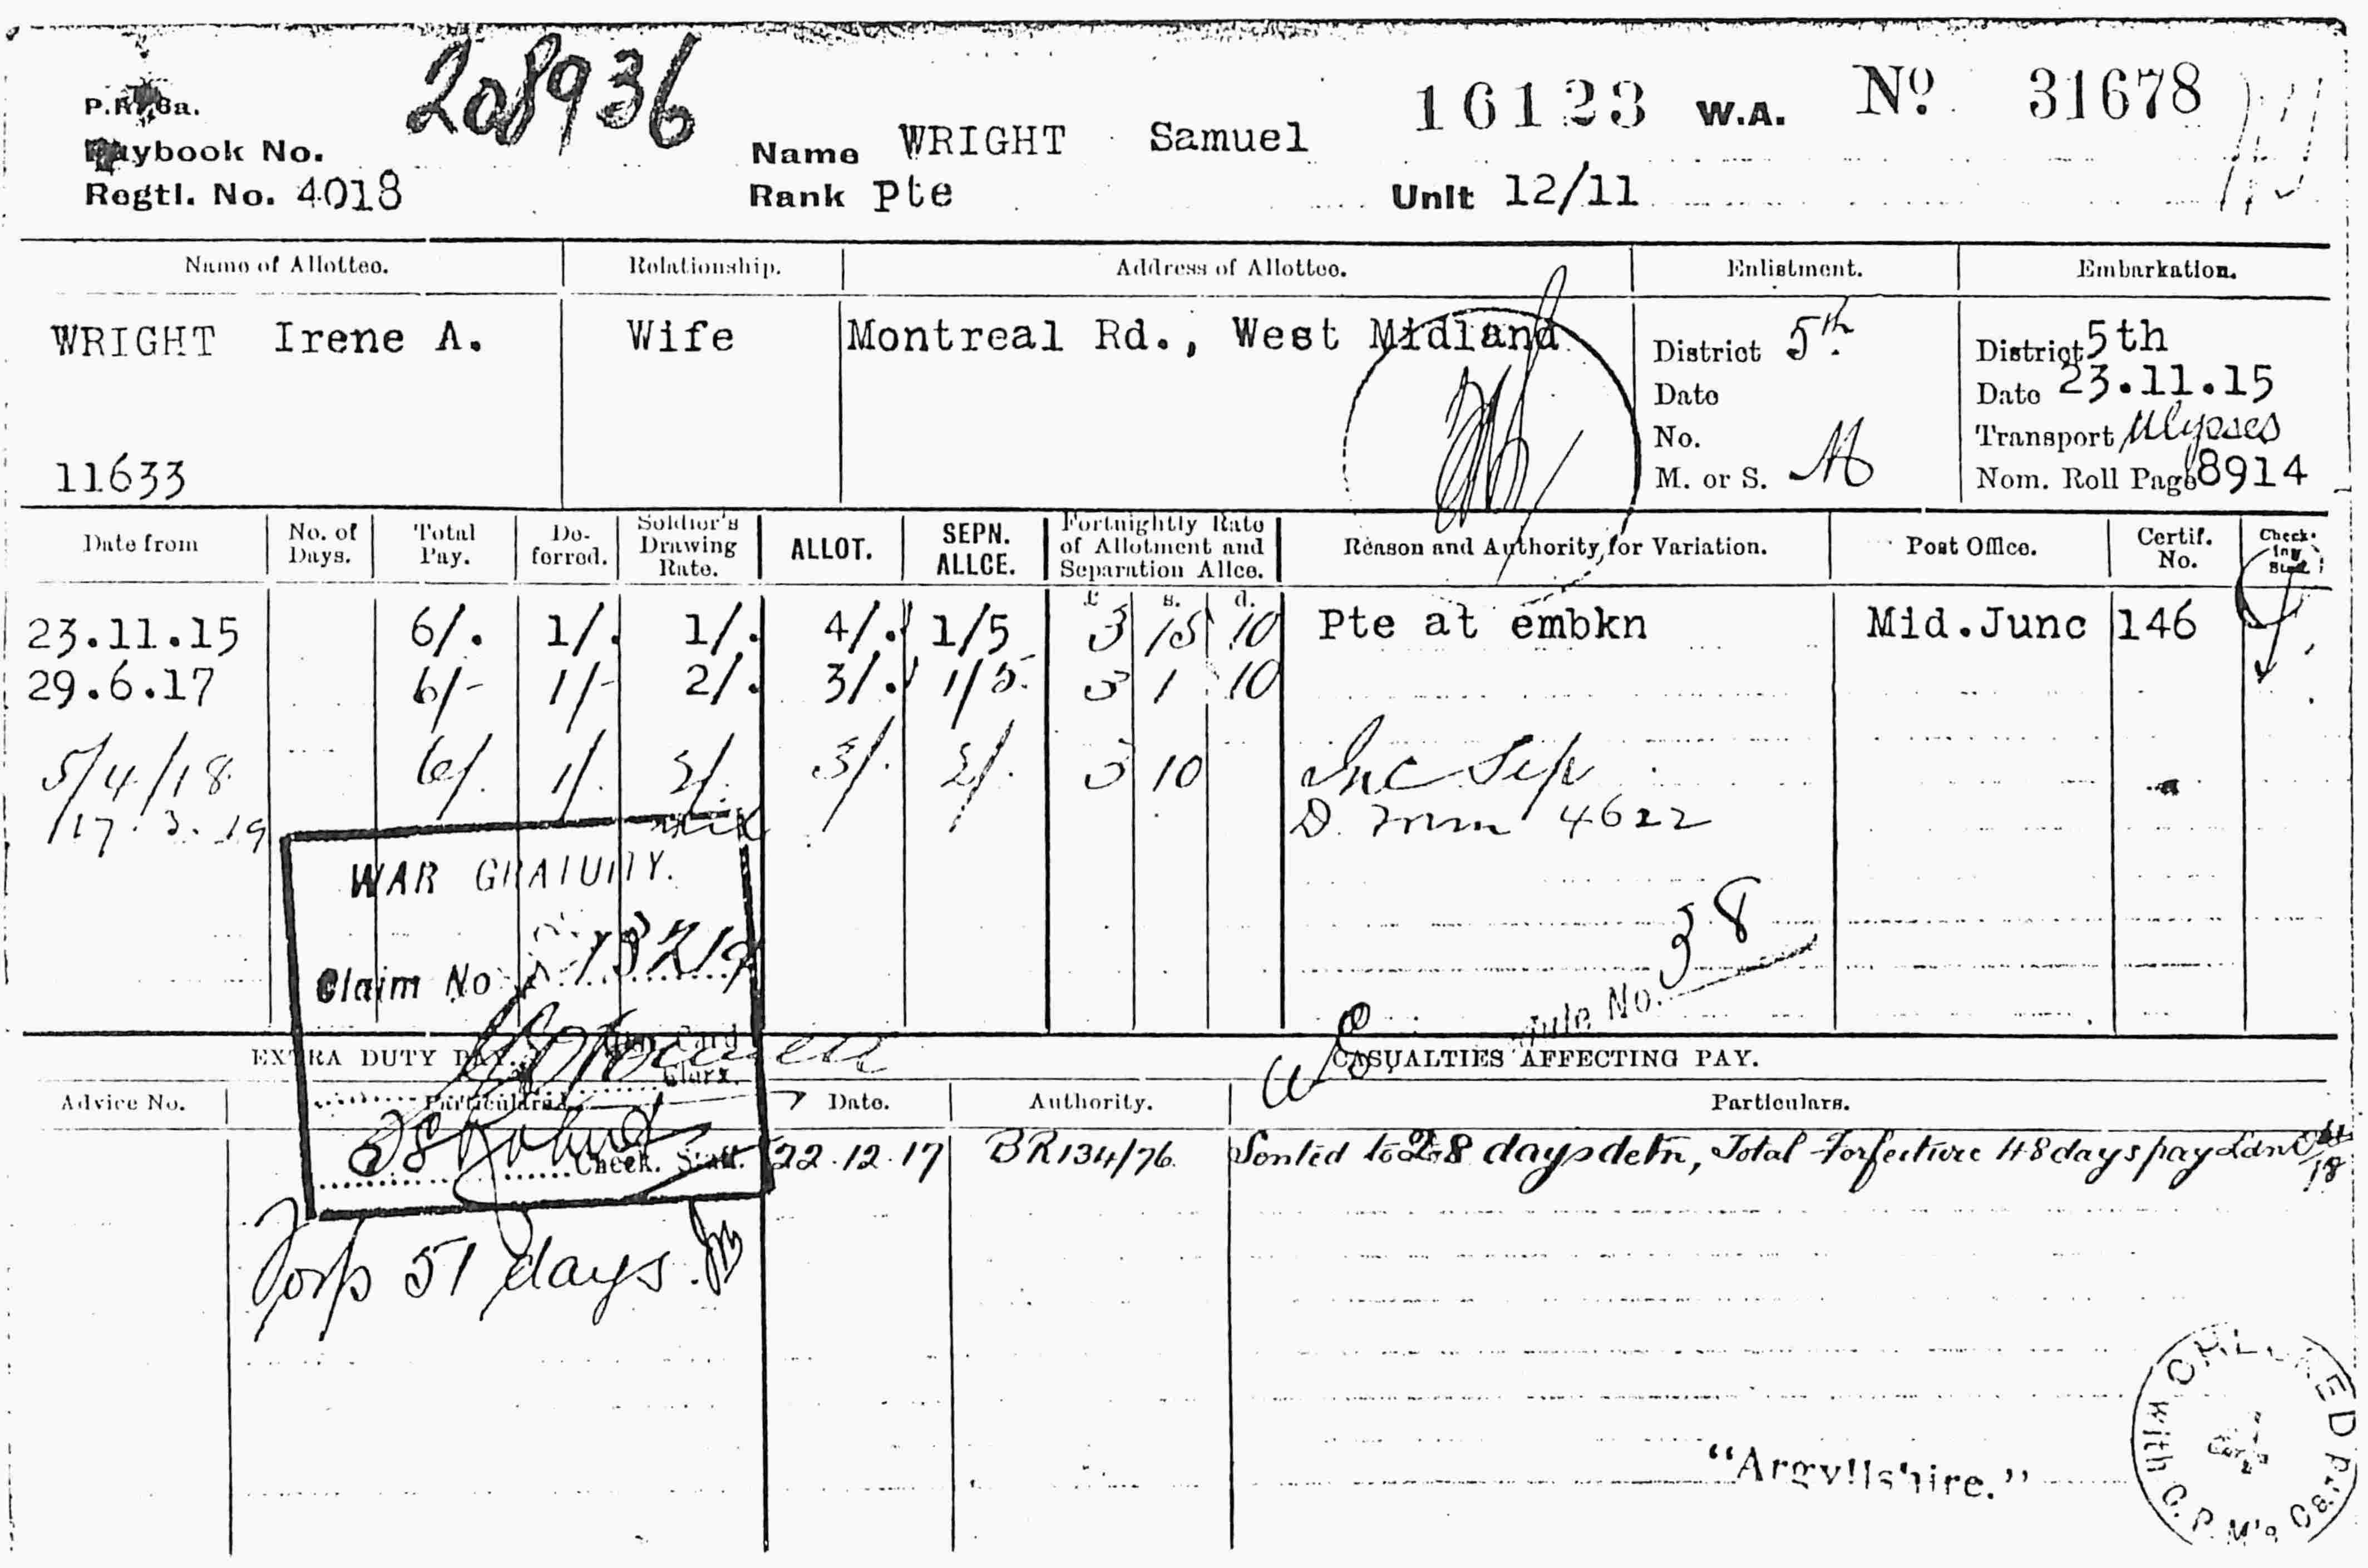 208936
P.R. 8a.
Paybook No.
Name WRIGHT Samuel
16123 W.A. Nº 31678
Regtl. No. 4018
Rank Pte
Unit 12/11
Name of Allottee. Relationship. Address of Allottee. Enlistment. Embarkation.
WRIGHT Irene A. Wife Montreal Rd., West Midland
District 5th District 5th
Date Date 23.11.15
No. Transport Ulysses
11633 M. or S. M Nom. Roll Page 8914
Date from No. of Days. Total Pay. Deferred. Soldier's Drawing Rate. ALLOT. SEPN. ALLCE. Fortnightly Rate of Allotment and Separation Allce. Reason and Authority for Variation. Post Office. Certif. No. Check- ing
£ s. d.
23.11.15 6/. 1/. 1/. 4/. 1/5 3 15 10 Pte at embkn Mid.Junc 146
29.6.17 6/- 1/- 2/. 3/. 1/5 3 1 10
5/4/18 6/. 1/. 2/. 3/. 2/. 3 10 Inc Sep
17.3.19 4622
WAR GRATUITY.
Claim No
38
No.
EXTRA DUTY PAY. Card
CASUALTIES AFFECTING PAY.
Clerk.
Advice No. Particulars. Date. Authority. Particulars.
Check. Staff.
22.12.17 BR134/76 Sented to 28 days detn, Total Forfeiture 48 days pay
Forf 51 days.
"Argyllshire."
CHECKED
with C.P.M's Card